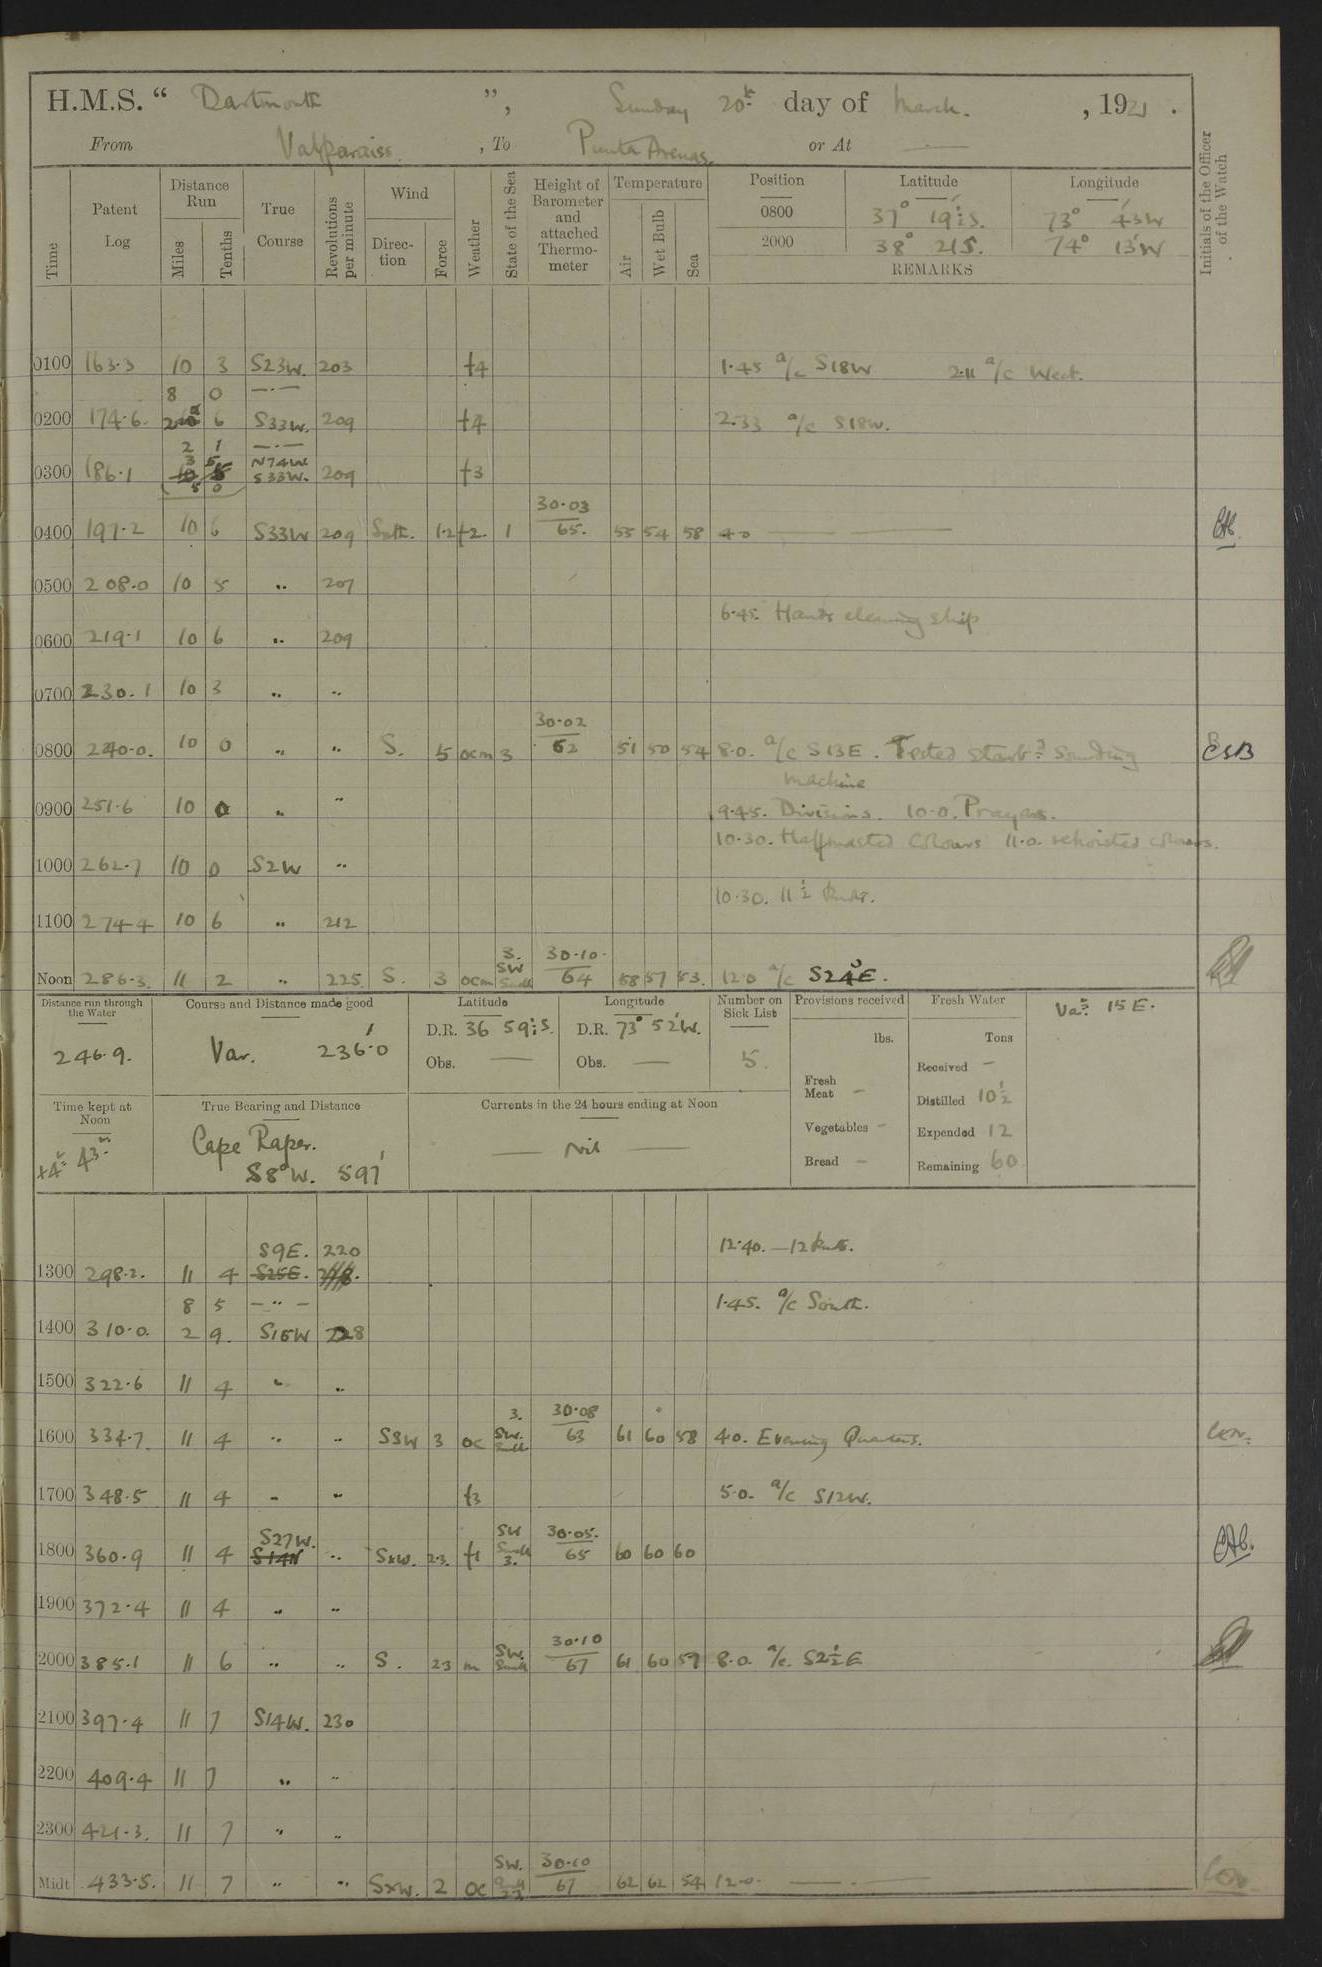 H.M.S. “ Dartmouth ”, Sunday 20th day of March. , 1921 .
From Valparaiso , To Punta Arenas. or At —
Time Patent Log Distance Run Miles Tenths True Course Revolutions per minute Wind Direction Force Weather State of the Sea Height of Barometer and attached Thermometer Temperature Air Wet Bulb Sea Position Latitude Longitude Initials of the Officer of the Watch
0800 37° 19½ S. 73° 43'W
2000 38° 21'S. 74° 13'W
REMARKS
0100 163.3 10 3 S23W. 203 f4 1.45 a/c S18W 2.11 a/c West.
8 0 —·—
0200 174.6. 6 S33W. 209 f4 2.33 a/c S18W.
2 1 —·—
3 5 N74W
0300 186.1 S33W. 209 f3
5 0
30.03
0400 197.2 10 6 S33W 209 Sth. 1.2 f2. 1 65. 55 54 58 4.0 —
0500 208.0 10 5 " 207
6.45. Hands cleaning ship
0600 219.1 10 6 " 209
0700 230.1 10 3 " "
30.02
0800 240.0. 10 0 " " S. 5 ocm 3 62 51 50 54 8.0. a/c S13E. Tested starbd sounding
machine
0900 251.6 10 0 " " 9.45. Divisions. 10.0. Prayers.
10.30. Halfmasted Colours 11.0. rehoisted colours.
1000 262.7 10 0 S2W "
10.30. 11½ knots.
1100 274.4 10 6 " 212
3. 30.10.
Noon 286.3. 11 2 " 225 S. 3 ocm SW Swell 64 58 57 53. 12.0 a/c S24°E.
Distance run through the Water Course and Distance made good Latitude Longitude Number on Sick List Provisions received Fresh Water Varn. 15 E.
246.9. Var. 236'.0 D.R. 36 59½ S. D.R. 73° 52'W. 5. lbs. Tons
Obs. — Obs. —
Fresh Meat — Received —
Distilled 10½
Time kept at Noon True Bearing and Distance Currents in the 24 hours ending at Noon
Vegetables — Expended 12
+4h 43m Cape Raper. — Nil —
S8°W. 591' Bread — Remaining 60
S9E. 220 12.40. — 12 knots.
1300 298.2. 11 4 S25E.
8 5 — " — 1.45. a/c South.
1400 310.0. 2 9. S16W 228
1500 322.6 11 4 " "
3. 30.08
1600 334.7 11 4 " " SSW 3 oc SW. Swell 63 61 60 58 4.0. Evening Quarters.
1700 348.5 11 4 " " f3 5.0. a/c S12W.
S27W. SW 30.05.
1800 360.9 11 4 S14W " SxW. 2.3. f1 Swell 3. 65 60 60 60
1900 372.4 11 4 " "
30.10
2000 385.1 11 6 " " S. 2.3 m SW. Swell 67 61 60 57 8.0. a/c. S2½E
2100 397.4 11 7 S14W. 230
2200 409.4 11 7 " "
2300 421.3. 11 7 " "
SW. 30.10
Midt 433.5. 11 7 " " SxW. 2 oc 67 62 62 54 12.0. —